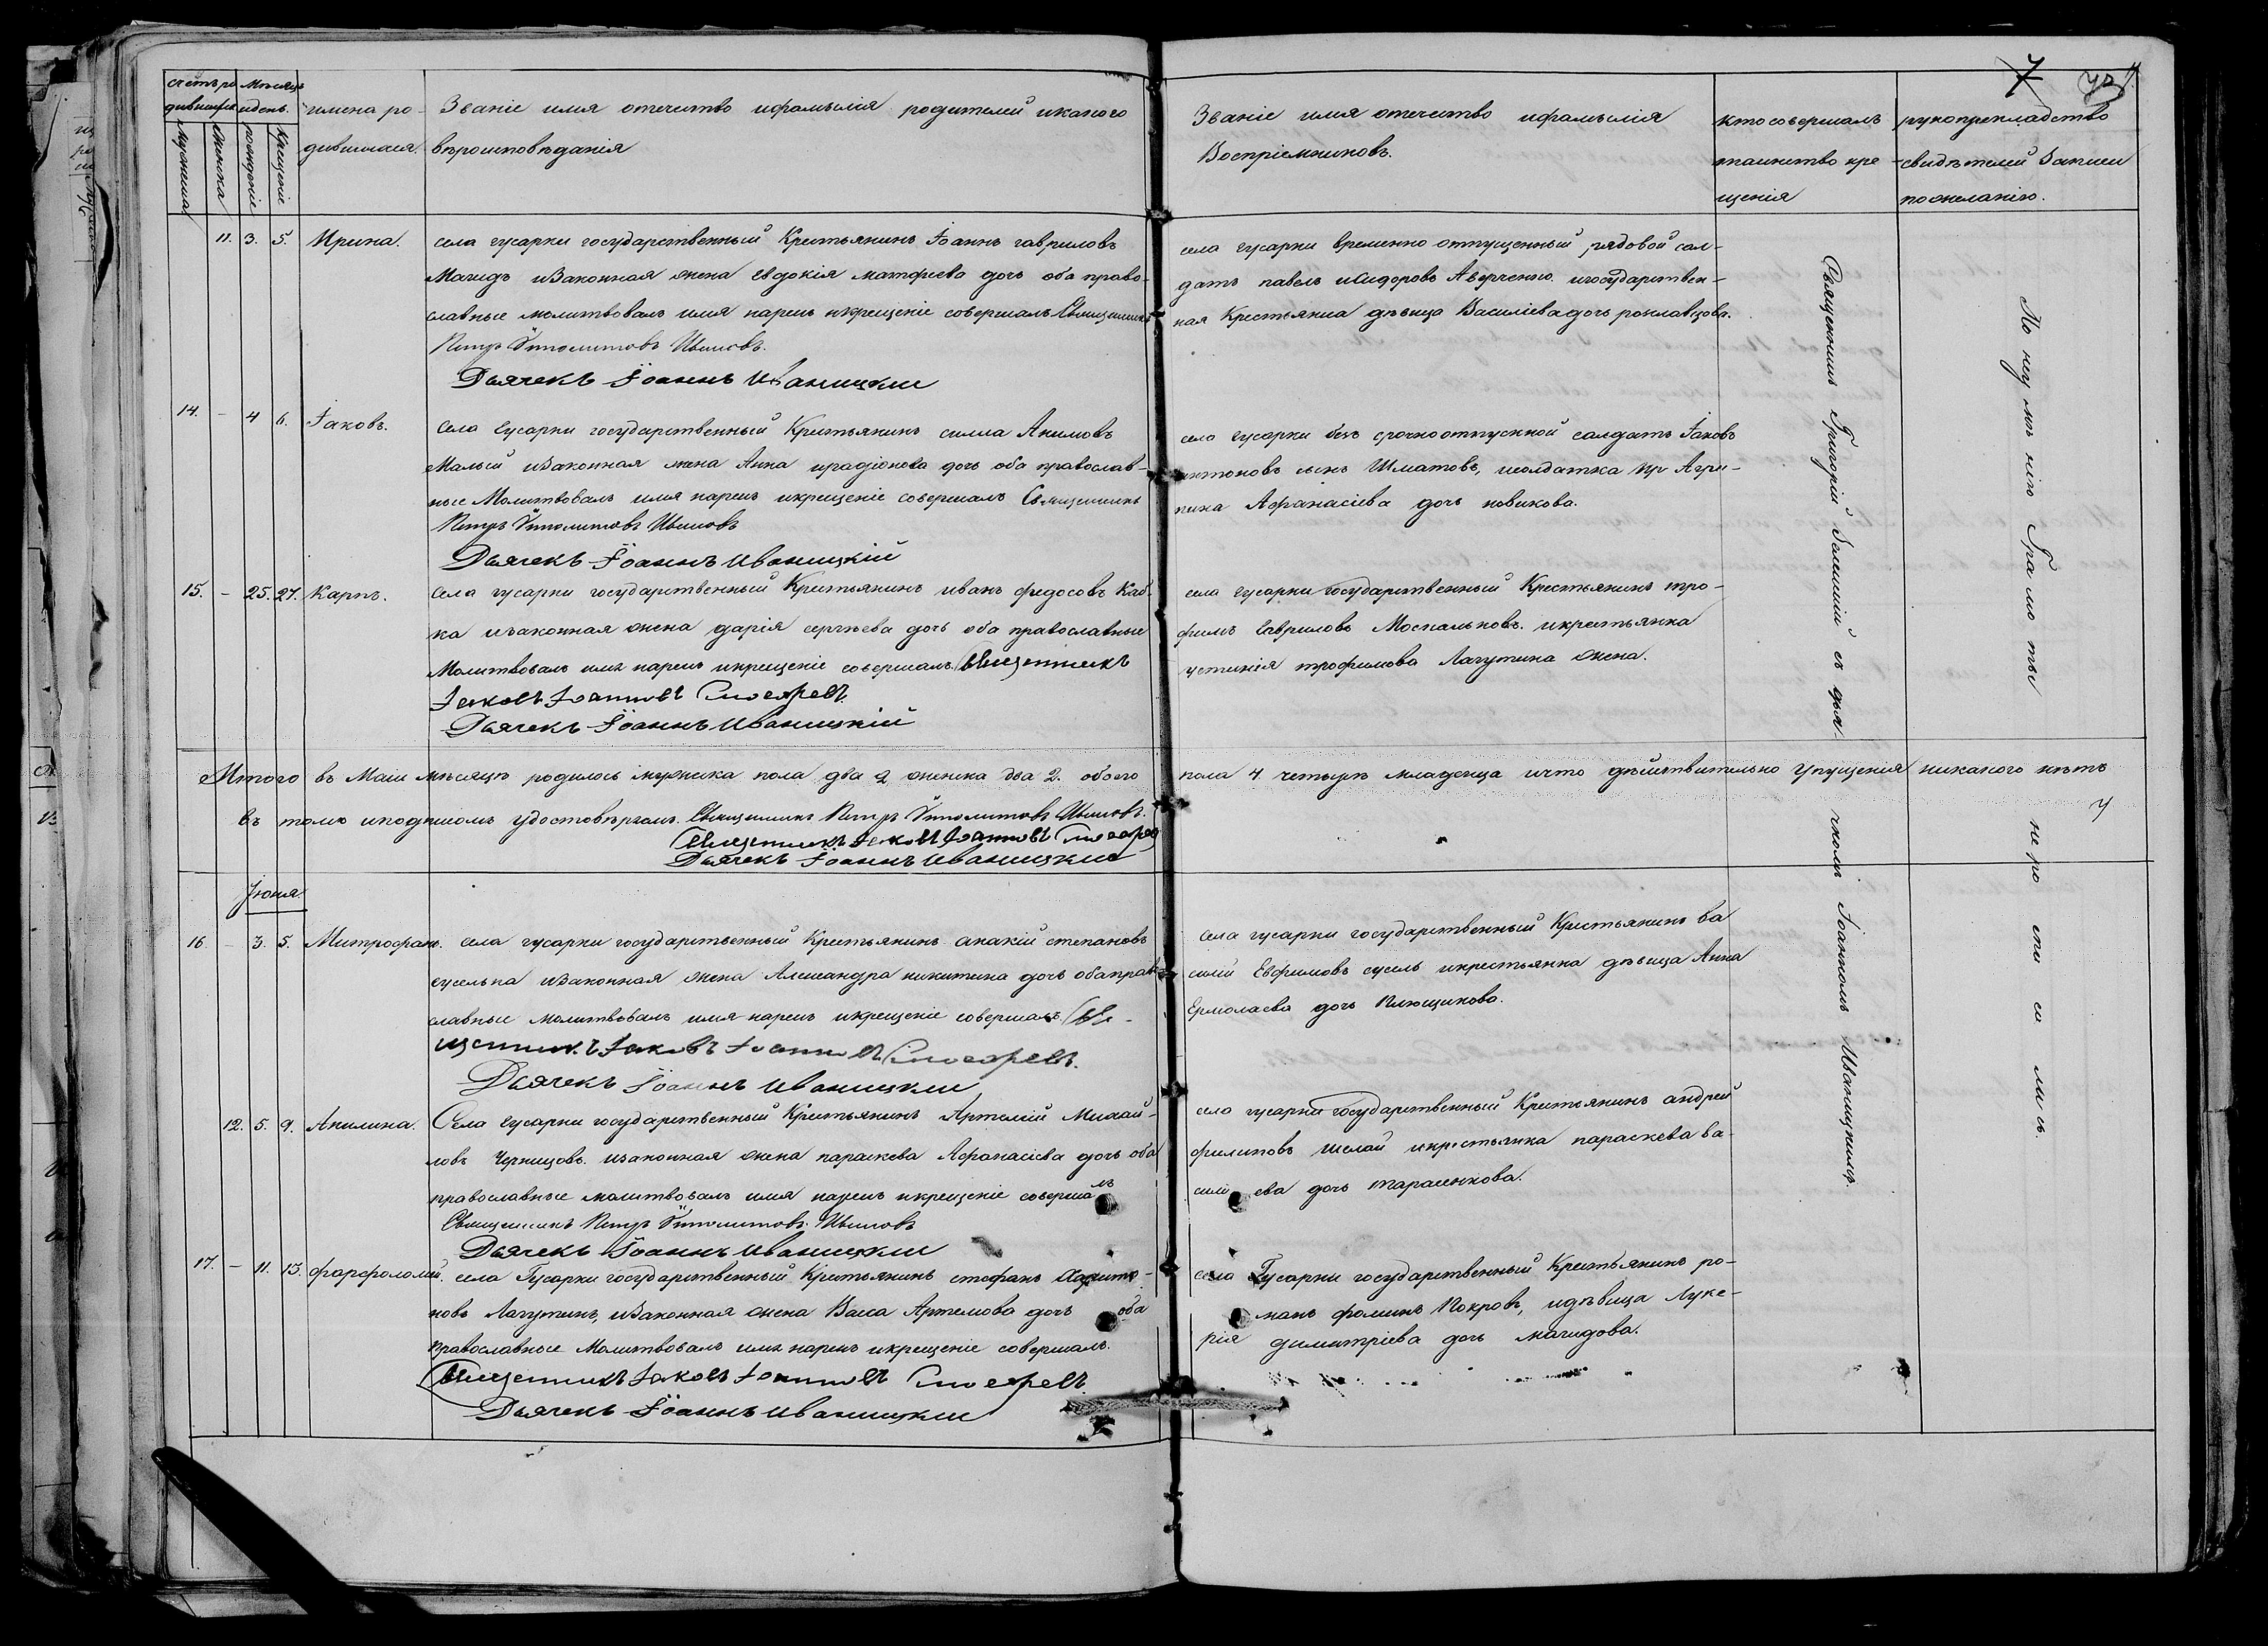 счетъ ро Мѣсяцъ
дившихся идень.
Мужеска
Женска
рожденіе
Крещеніе
имена ро-
дившихся.
Званіе имя отечество ифамылія родителей икакого
вѣроисповѣданія
Званіе имя отечество ифамылія
Воспріемниковъ.
ктосовершалъ
таинство кре
щенія
рукоприкладство
свидѣтелей Записи
пожеланію.
7
11. 3. 5. Ирина.
села гусарки государственный Крестьянинъ Іоаннъ гавриловъ
Магидъ иЗаконная жена Евдокія матфеева дочь оба право-
славные молитвовалъ имя нарекъ икрещеніе совершалъ Священникъ
Петръ Ѵпполитовъ
Дьячекъ Іоаннъ Иваницкій
села гусарки временно отпущенный рядовой сол-
датъ павелъ иСидоровъ Аверченко. игосударствен-
ная Крестьянка дѣвица Василіева дочь
14. - 4 6. Іаковъ.
Села Гусарки государственный Крестьянинъ силла Акимовъ
Малый иЗаконная жена Анна ирадіонова дочь оба православ-
ные Молитвовалъ имя нарекъ икрещеніе совершалъ Священникъ
Петръ Ѵпполитовъ
Дьячекъ Іоаннъ Иваницкій
село гусарки безсрочноотпускной солдатъ Іаковъ
антоновъ сынъ Шматовъ, исолдатка Агри-
пина Афанасіева дочь новикова.
15. - 25. 27. Карпъ.
Села гусарки государственный Крестьянинъ иванъ федосовъ
ка изаконная жена дарія сергѣева дочь оба православные
Молитвовалъ имя нарекъ икрещеніе совершалъ Священникъ
Іаковъ Іоанновъ
Дьячекъ Іоаннъ Иваницкій
села гусарки государственный Крестьянинъ тро-
фимъ Гавриловъ Москальковъ. икрестьянка
устинія трофимова Лагутина жена.
Итого въ Маіи мѣсяцѣ родилось мужеска пола два 2 женска два 2. обоего пола 4 четыре младенца ичто дѣйствительно упущенія никакого нѣтъ
въ томъ иподписомъ удостовѣряемъ. Священникъ Петръ Ѵпполитовъ
Священникъ Іаковъ Іоанновъ
Дьячекъ Іоаннъ Иваницкій
Іюня.
16. - 3. 5. Митрофанъ.
села гусарки государственный Крестьянинъ акакій степановъ
суселька иЗаконная жена Александра никитина дочь оба право
славные молитвовалъ имя нарекъ икрещеніе совершалъ Свя-
щенникъ Іаковъ Іоанновъ
Дьячекъ Іоаннъ Иваницкій
Села гусарки государственный Крестьянинъ ва
силій Евфимовъ сусель икрестьянка дѣвица Анна
Ермолаева дочь Клющикова.
12. 5. 9. Акилина.
Села Гусарки государственный Крестьянинъ Артемій Михай-
ловъ Черницовъ. изаконная жена параскева Афанасіева дочь оба
православные молитвовалъ имя нарекъ икрещеніе совершалъ
Священникъ Петръ Ѵпполитовъ
Дьячекъ Іоаннъ Иваницкій
села гусарки государственный Крестьянинъ андрей
филиповъ икрестьянка параскева ва-
силіева дочь тарасенкова.
17. - 11. 13. фарфоломей.
села Гусарки государственный Крестьянинъ стефанъ Харито-
новъ Лагутинъ, иЗаконная жена Васса Артемова дочь оба
православные Молитвовалъ имя нарекъ икрещеніе совершалъ.
Священникъ Іаковъ Іоанновъ
Дьячекъ Іоаннъ Иваницкій
села Гусарки государственный Крестьянинъ ро-
манъ фоминъ Покровъ, идѣвица Луке-
рія димитріева дочь магидова.
Священникъ Григорій съ дья
чкомъ Іоанномъ Иваницкимъ.
По неумѣнію Грамоты
не ро спи са ли сь.